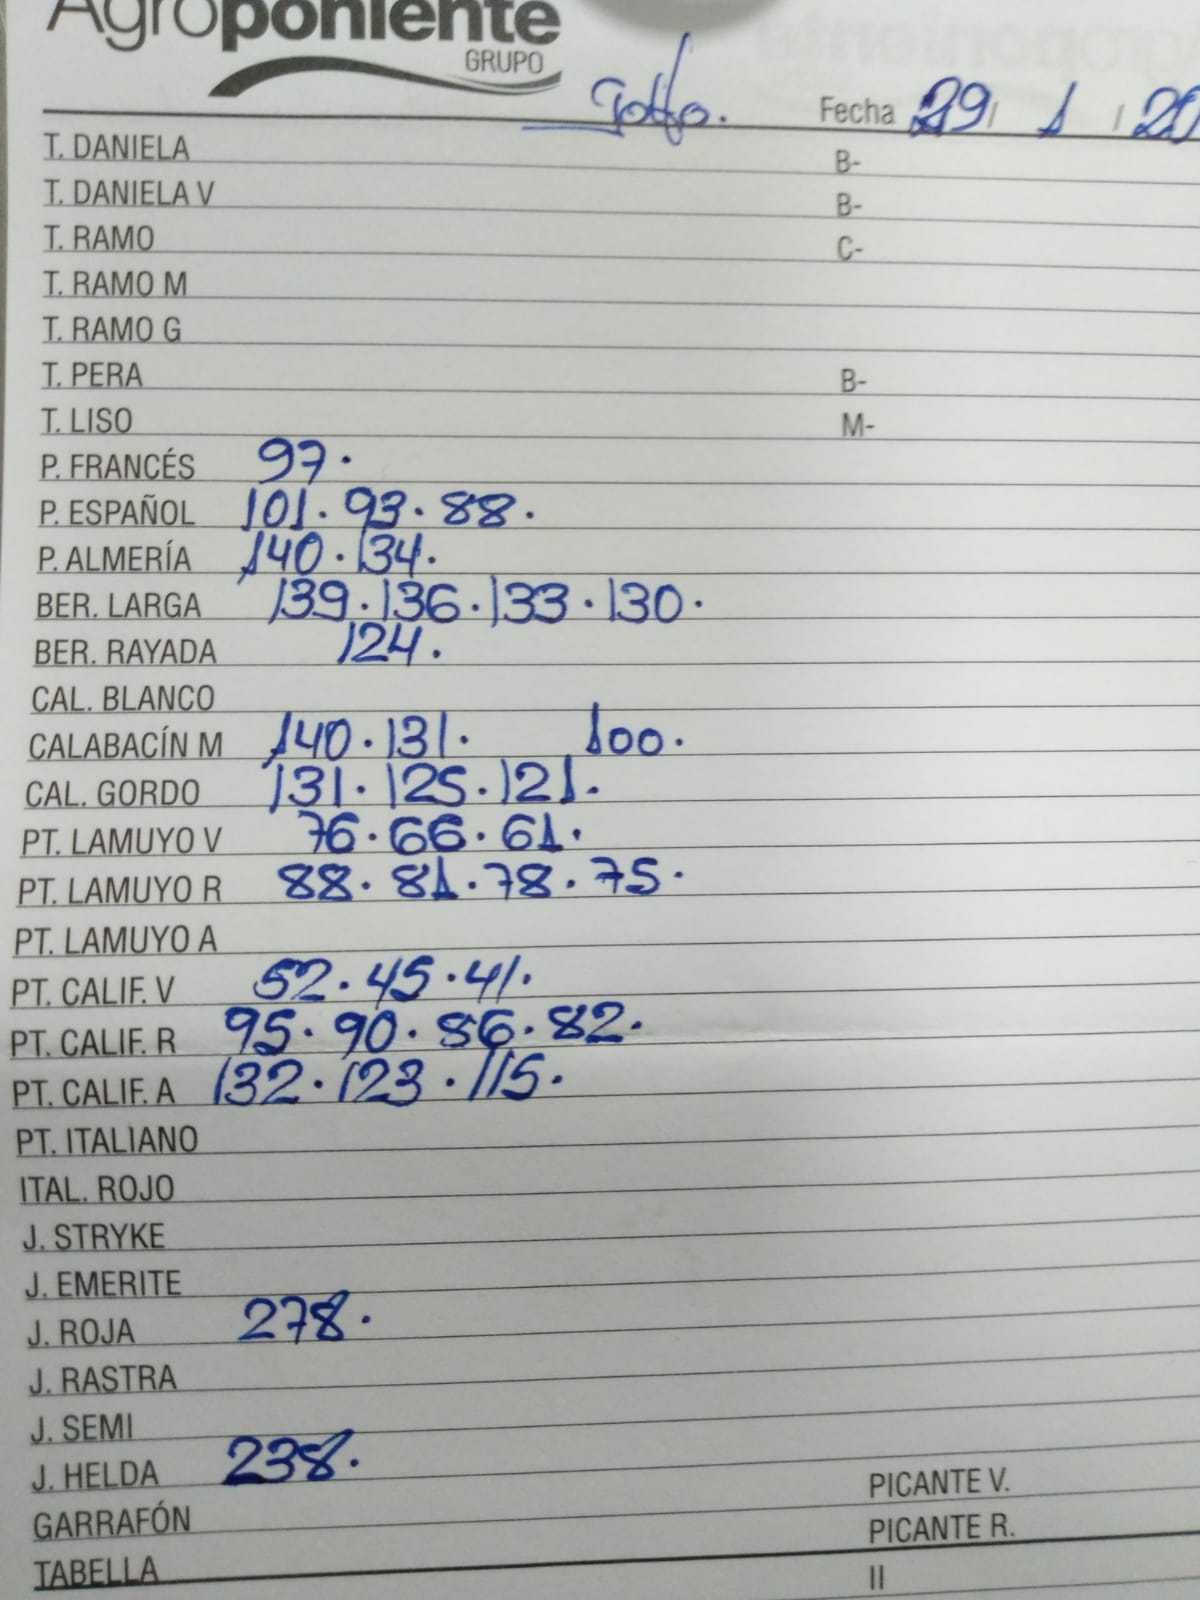 Agroponiente
GRUPO
Fecha 29/ 1 / 20
T. DANIELA B-
T. DANIELA V B-
T. RAMO C-
T. RAMO M
T. RAMO G
T. PERA B-
T. LISO M-
P. FRANCÉS 97.
P. ESPAÑOL 101. 93. 88.
P. ALMERÍA 140. 134.
BER. LARGA 139. 136. 133. 130.
BER. RAYADA 124.
CAL. BLANCO
CALABACÍN M 140. 131. 100.
CAL. GORDO 131. 125. 121.
PT. LAMUYO V 76. 66. 61.
PT. LAMUYO R 88. 81. 78. 75.
PT. LAMUYO A
PT. CALIF. V 52. 45. 41.
PT. CALIF. R 95. 90. 86. 82.
PT. CALIF. A 132. 123. 115.
PT. ITALIANO
ITAL. ROJO
J. STRYKE
J. EMERITE
J. ROJA 278.
J. RASTRA
J. SEMI
J. HELDA 238.
GARRAFÓN PICANTE V.
TABELLA PICANTE R.
II